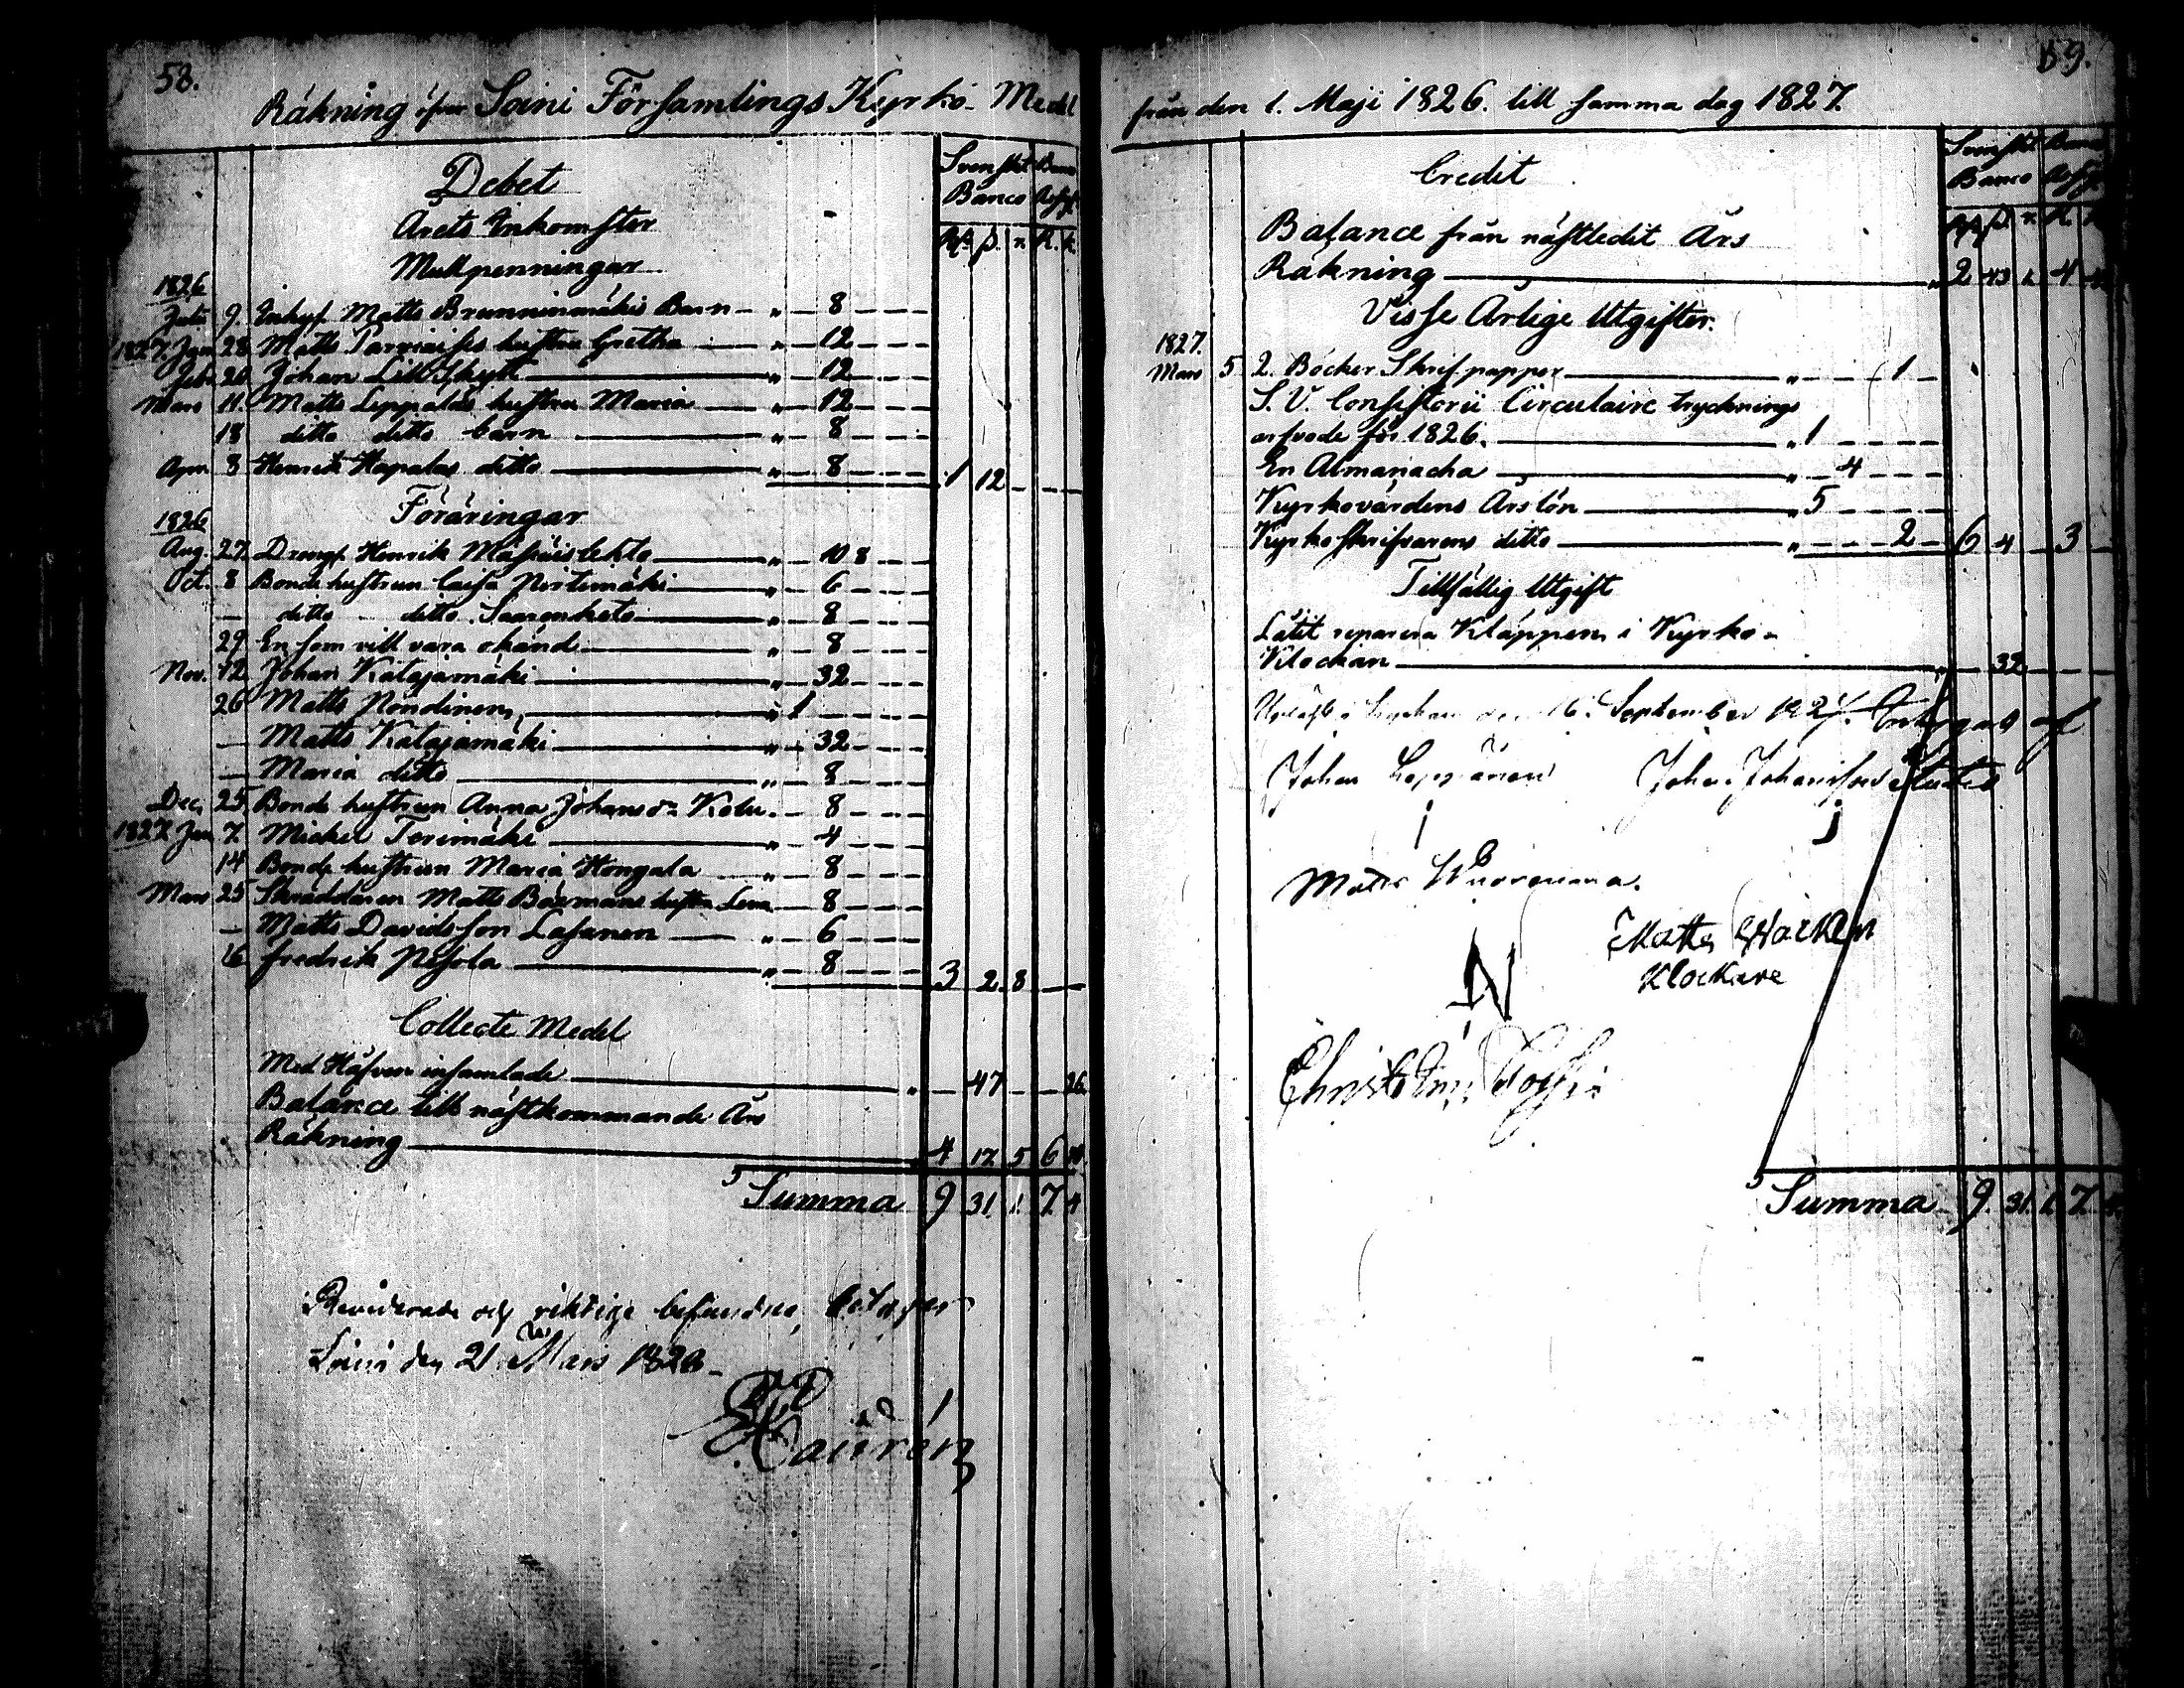 58.
Räkning öfver Soini Församlings Kyrko-Medel
Debet
Svenskt Banco
Banco
Rd. ß. r. R. k.
Årets Inkomster
Mullpenningar
1826
9. Matts Brunninmäkis Barn - " - 8 - - -
1827. Jan 28 Matts hustru Gretha - " - 12 - - -
Feb. 20 Johan - " - 12 - - -
Mars 11. Matts Leppälas hustru Maria - " - 12 - - -
18 ditto ditto barn - " - 8 - - -
Apr. 8 Henrik Hapalas ditto - " - 8 - - - 1 12 - - -
Föräringar
1826
Aug. 27. Henrik - " - 10 8 - - -
Oct. 8 Bonde hustrun Caisa - " - 6 - - -
— ditto ditto Saarenketo - " - 8 - - -
29 En som vill vara okänd - " - 8 - - -
Nov. 12 Johan Katajamäki - " - 32 - - -
26 Matts Pöndinen - " 1 - - - -
— Matts Katajamäki - " - 32 - - -
— Maria ditto - " - 8 - - -
Dec. 25 Bonde hustrun Anna Johansdr Kolu - - 8 - - -
1827. Jan 7. Mickel - " - 4 - - -
14 Bonde hustrun Maria Hongala - " - 8 - - -
Mars 25 Skräddaren Matts hustru Lena - 8 - - -
— Matts Davidsson Lasanen - " - 6 - - -
Fredrik - " - 8 - - - 3 2 8 - -
Collecte Medel
Med Håfven insamlade - " - 47 - - 26
Balance till nästkommande Års
Räkning 4 17 5 6
Summa 9 31 1. 7 4
Reviderade och riktige befundne,
Soini den 21 Mars
59.
från den 1. Maji 1826. till samma dag 1827.
Credit
Svenskt Banco
Banco
Balance från nästledit Års
Räkning - " 2 43 1 4
Visse Årlige Utgifter.
1827.
Mars 5 2. Böcker Skrifpapper - " - - 1 -
S. V. Consistorii Circulaire trycknings
arfvode för 1826. - " 1 - - - -
En Almanacha - " - 4 - - -
Kyrkovärdens Årslön - " 5 - - - -
Kyrkoskrifvarens ditto - " - - - 2 - 6 4 - 3 -
Tillfällig Utgift
Låtit reparera Kläppen i Kyrko-
Klockan - " - 32 - - -
den 16. September 1827.
Johan
Johan Johansson
Matts
N
Matts
Klockare
Summa 9. 31. 1. 7.